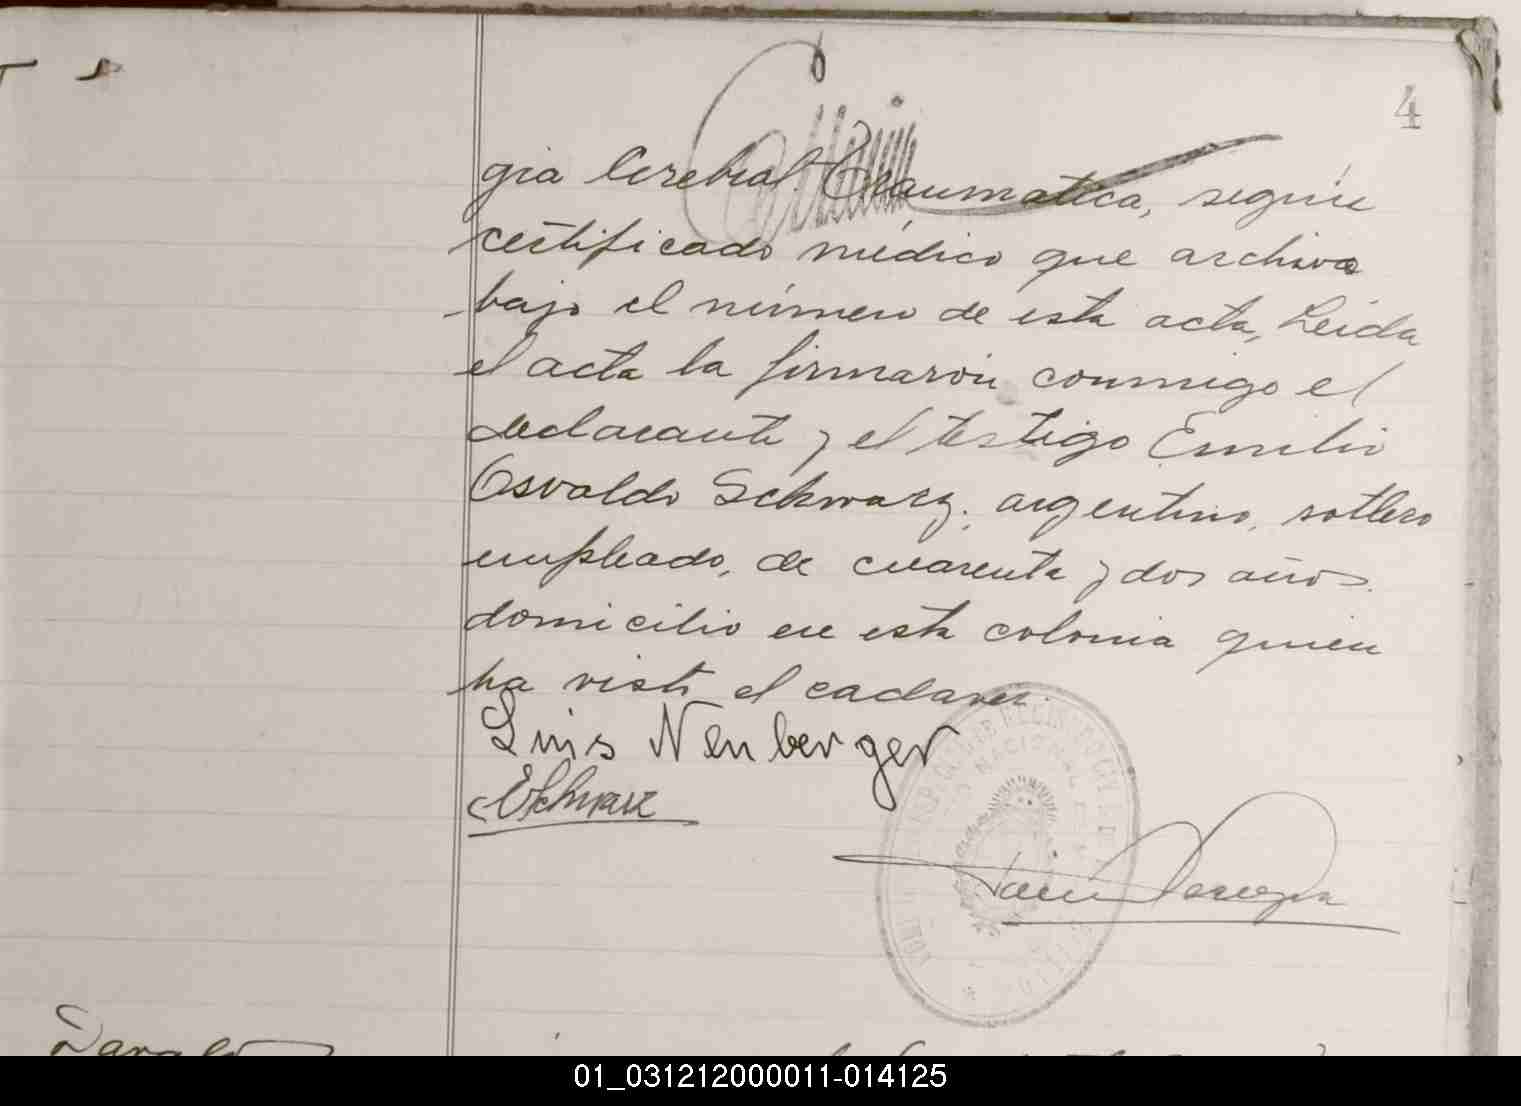 4
gia Cerebral Traumatica, según
certificado médico que archivo
bajo el número de esta acta, Leida
el acta la firmarón conmigo el
declarante y el testigo Emilio
Osvaldo Schwarz, argentino, soltero
empleado, de cuarenta y dos años
domicilio en esta colonia quien
ha visto el cadaver.
Luis Neuberger
ESchwarz
01_031212000011-014125